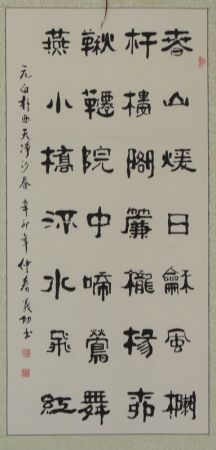 春山煖日龢風欄
杆樓閣簾櫳楊柳
鞦韆院中啼鶯舞
燕小橋流水飛紅
元白朴曲天净沙春 辛卯年仲春